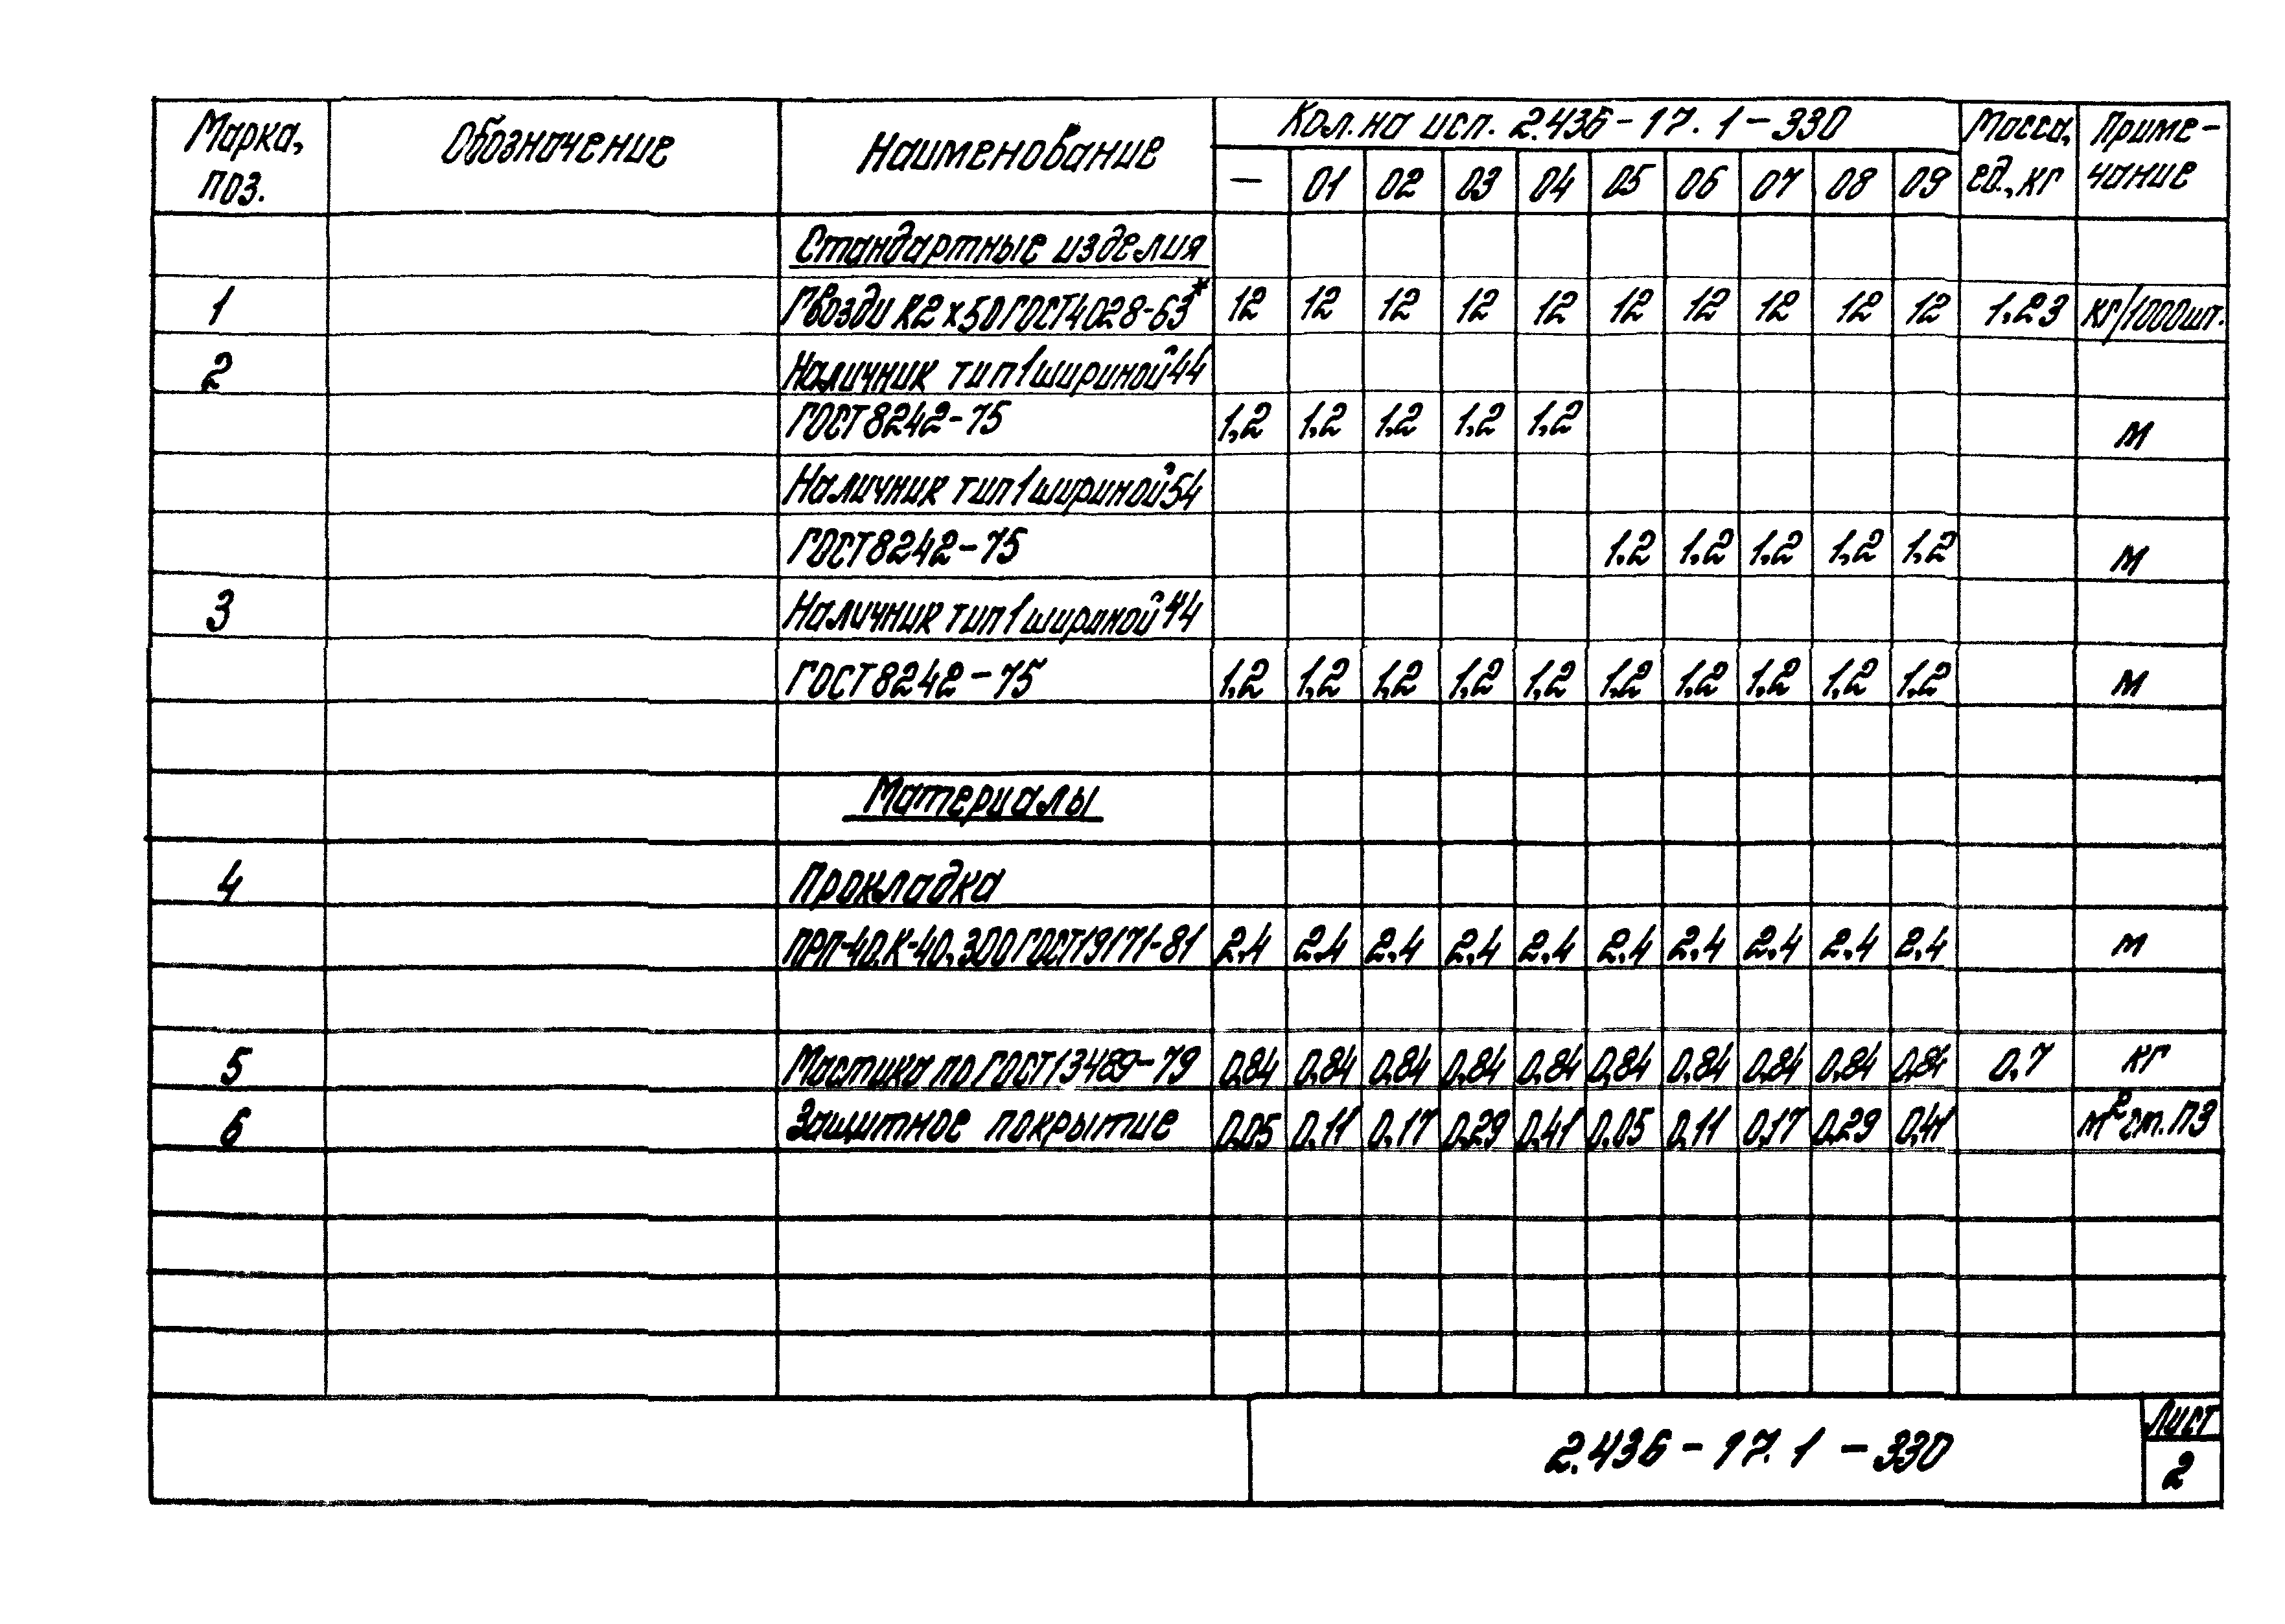 Марка, поз. Обозначение Наименование Кол. на исп. 2.436-17.1-330 Масса, ед., кг Приме-чание
— 01 02 03 04 05 06 07 08 09
Стандартные изделия
1 Гвозди К2х50 ГОСТ 4028-63* 12 12 12 12 12 12 12 12 12 12 1,23 кг/1000шт.
2 Наличник тип 1 шириной 44
ГОСТ 8242-75 1,2 1,2 1,2 1,2 1,2 м
Наличник тип 1 шириной 54
ГОСТ 8242-75 1.2 1,2 1,2 1,2 1,2 м
3 Наличник тип 1 шириной 44
ГОСТ 8242-75 1,2 1,2 1,2 1,2 1,2 1,2 1,2 1,2 1,2 1,2 м
Материалы
4 Прокладка
ПРП-40.К-40.300 ГОСТ 19171-81 2.4 2.4 2.4 2.4 2.4 2.4 2.4 2.4 2.4 2.4 м
5 Мастика по ГОСТ 13489-79 0,84 0,84 0,84 0,84 0,84 0,84 0,84 0,84 0,84 0,84 0,7 кг
6 Защитное покрытие 0,05 0,11 0,17 0,29 0,41 0,05 0,11 0,17 0,29 0,41 м² см. ПЗ
2.436-17.1-330
Лист
2